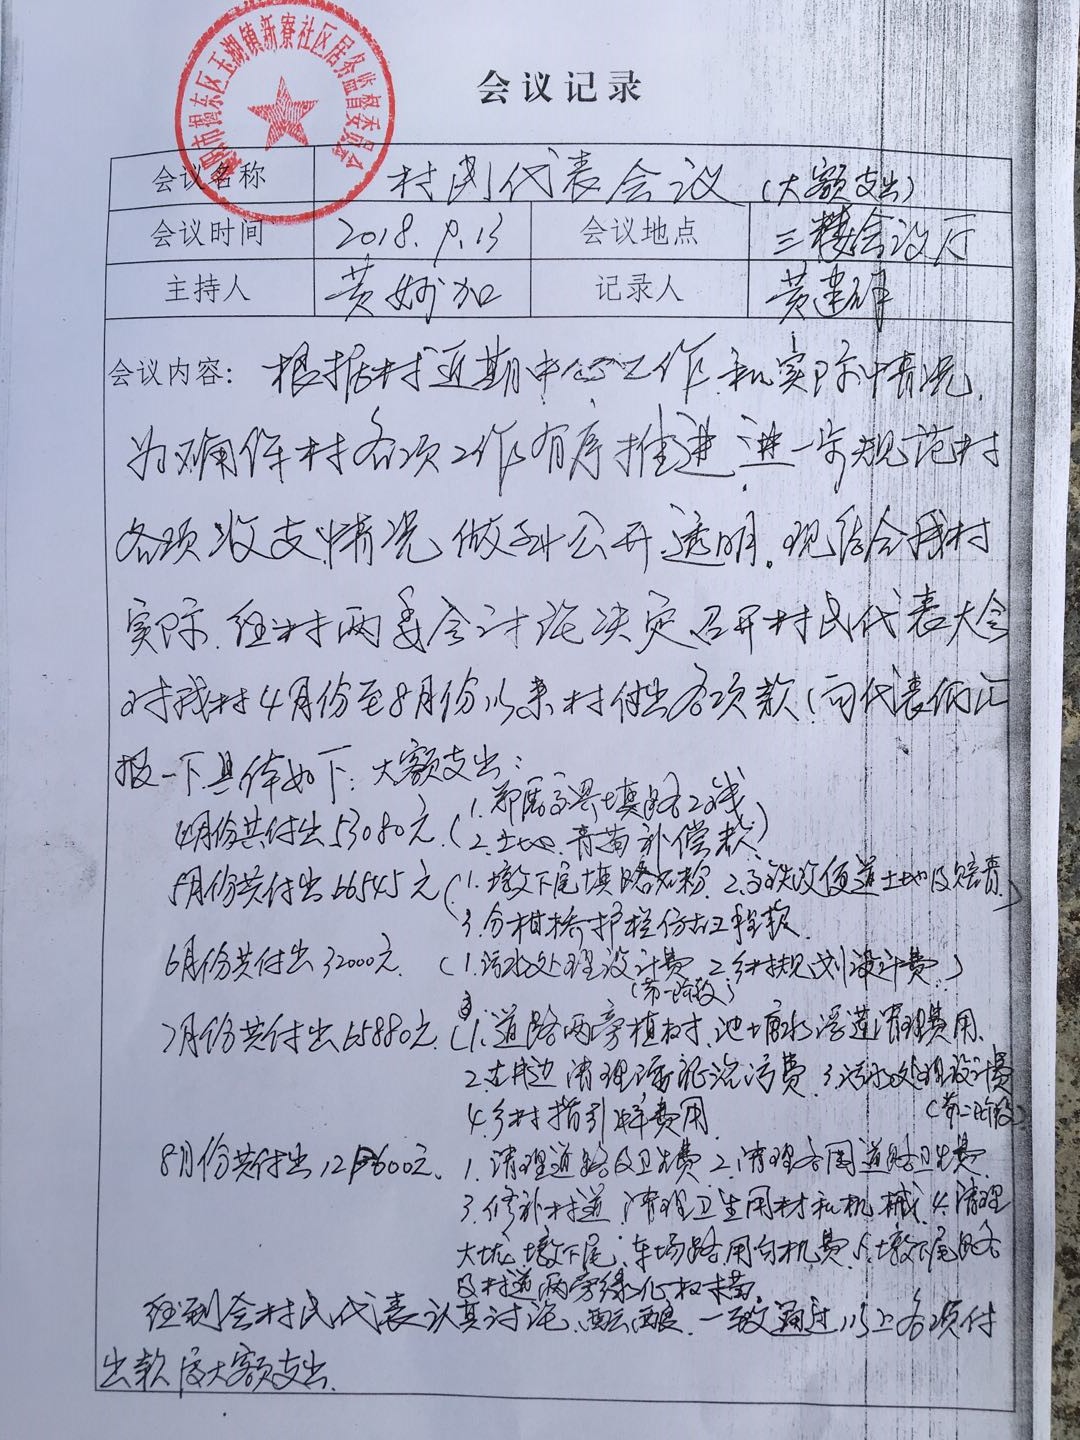 揭东区玉湖镇新寮社区居务监督委员会
会议记录
会议名称 村民代表会议（大额支出）
会议时间 2018.9.13 会议地点 三楼会议厅
主持人 黄 加 记录人 黄建
会议内容： 根据村近期中心工作和实际情况，
为确保村各项工作有序推进，进一步规范村
各项收支情况，做到公开透明。现结合我村
实际，经村两委会讨论决定召开村民代表大会
对我村4月份至8月份以来村付出各项款，向代表们汇
报一下，具体如下：大额支出：
4月份共付出53080元（1. 填路
2.土地、青苗补偿款）
5月份共付出66545元（1.墩下尾填路 粉 2. 改便道土地及赔青
3. 桥护栏 工程款）
6月份共付出32000元（1.污水处理设计费 2.乡村规划设计费）
（第一阶段）
7月份共付出65880元（1.道路两旁植树、池塘水浮莲清理费用、
2. 边清理 污费 3.污水处理设计费
4.乡村指引牌费用 （第二阶段）
8月份共付出 600元 1.清理道路及卫生费 2.清理 周道路卫生费
3.修补村道、清理卫生用材和机械 4.清理
大坑、墩下尾、车场路用勾机费 5.墩下尾路
及村道两旁绿化 树苗
经到会村民代表认真讨论、酝酿，一致通过以上各项付
出款 大额支出。